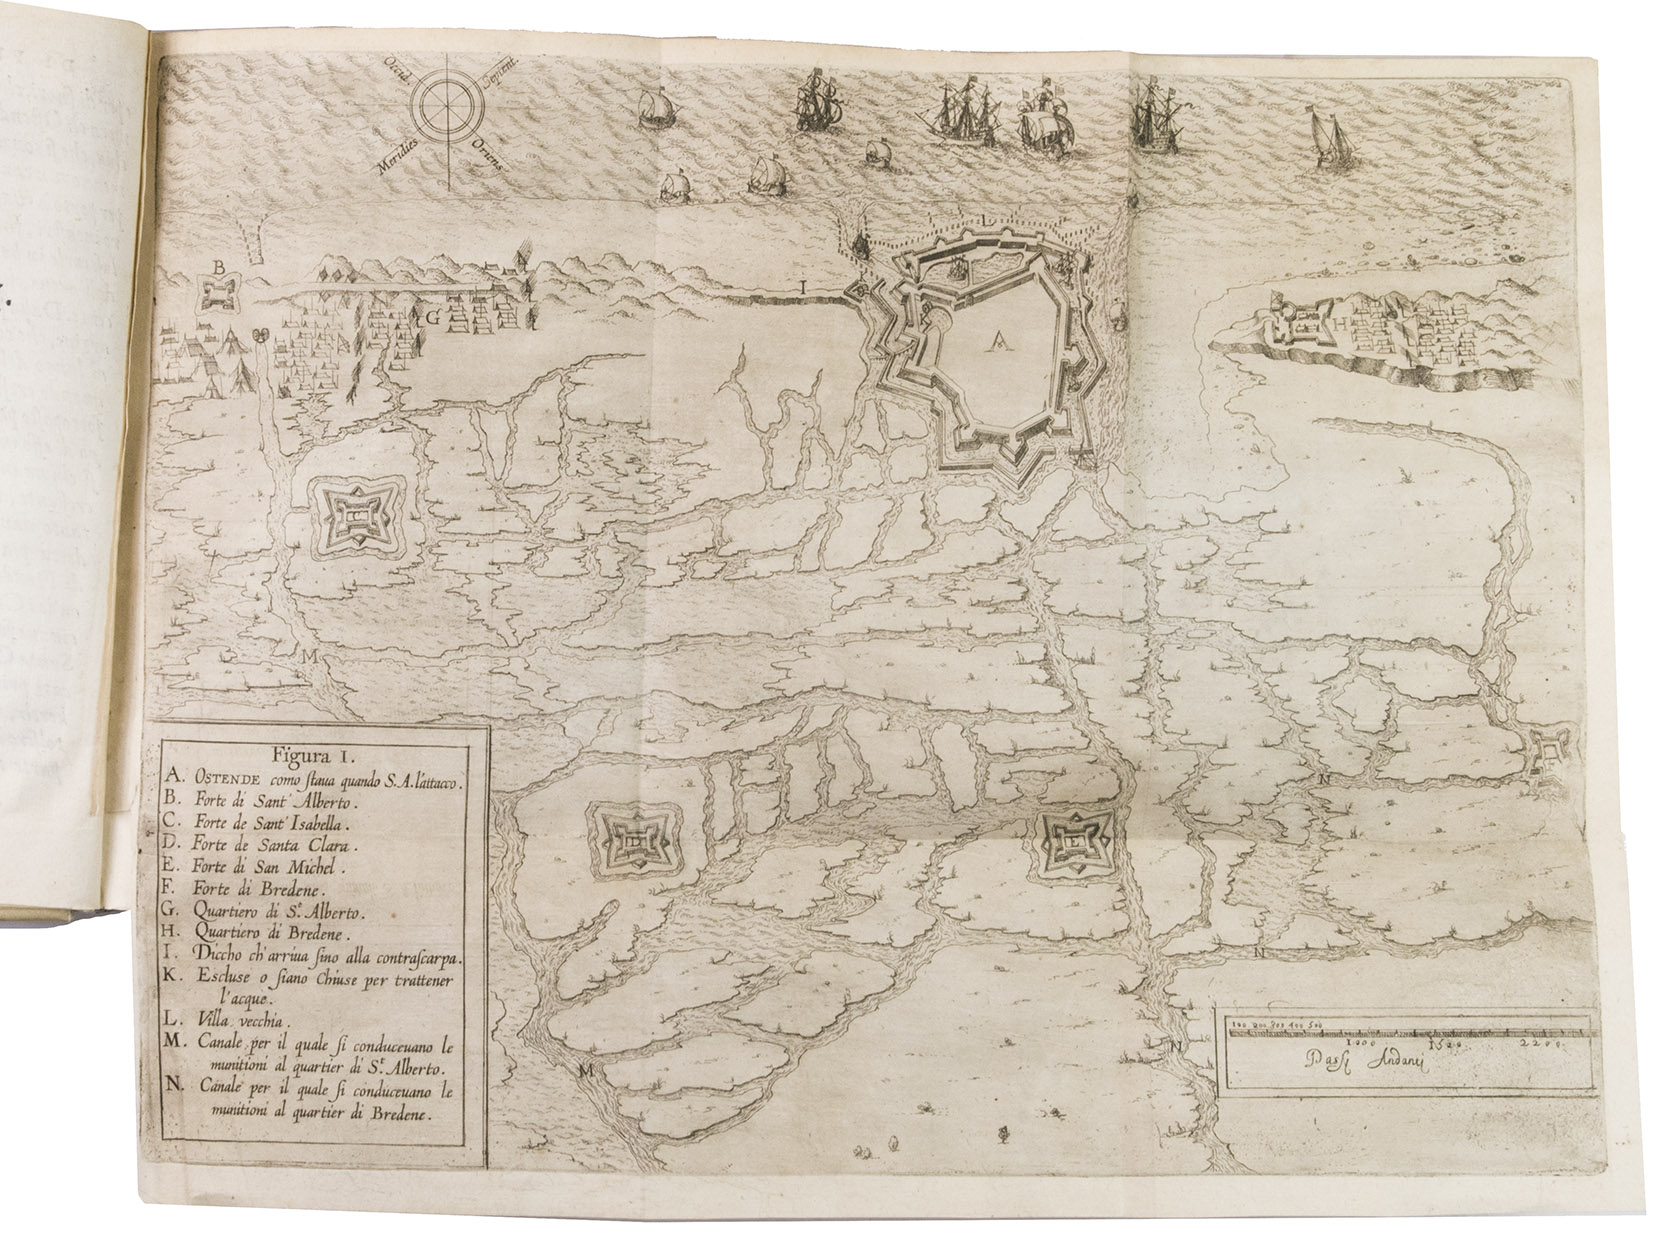 Occid.
Septent.
Meridies
Oriens
B
L
I
G
A
H
M
D
E
N
N
M
N
Figura I.
A. OSTENDE como ſtaua quando S. A. l'attacco.
B. Forte di Sant' Alberto.
C. Forte de Sant' Isabella.
D. Forte de Santa Clara.
E. Forte di San Michel.
F. Forte di Bredene.
G. Quartiero di S.t Alberto.
H. Quartiero di Bredene.
I. Diccho ch'arriua ſino alla contraſcarpa.
K. Escluse o ſiano Chiuse per trattener
l'acque.
L. Villa vecchia.
M. Canale per il quale ſi conduceuano le
munitioni al quartier di S.t Alberto.
N. Canale per il quale ſi conduceuano le
munitioni al quartier di Bredene.
100 200 300 400 500
1000 1500 2200
Paſſi Andanti